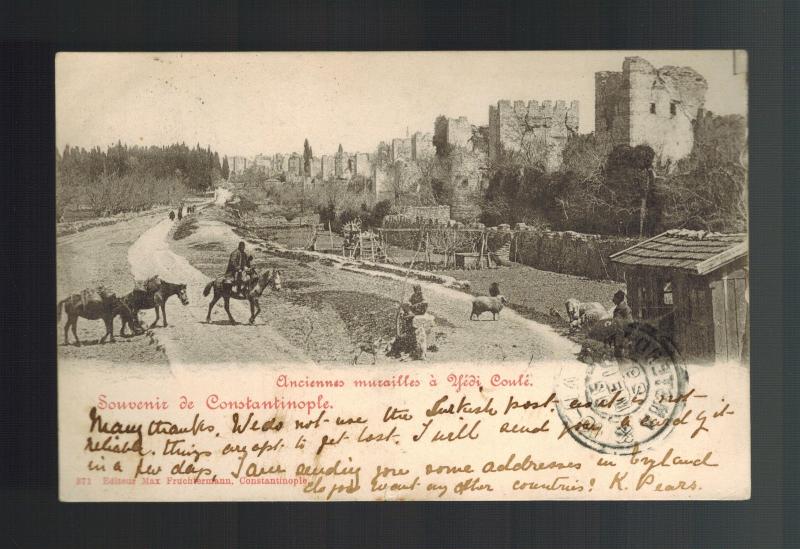 Anciennes murailles à Yédi Coulé.
Souvenir de Constantinople.
Many thanks. We do not use the Turkish post as it is not
reliable. things are apt to get lost. I will send you a card of it
in a few days, I am sending you some addresses in
371 Editeur Max Fruchtermann, Constantinople
do you want any other countries? K. Pears.